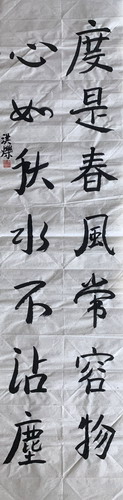 度是春風常容物
心如秋水不沾塵
洪爍